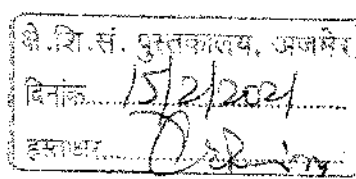 क्षे.शि.सं. पुस्तकालय, अजमेर
दिनांक 15/2/2021
हस्ताक्षर